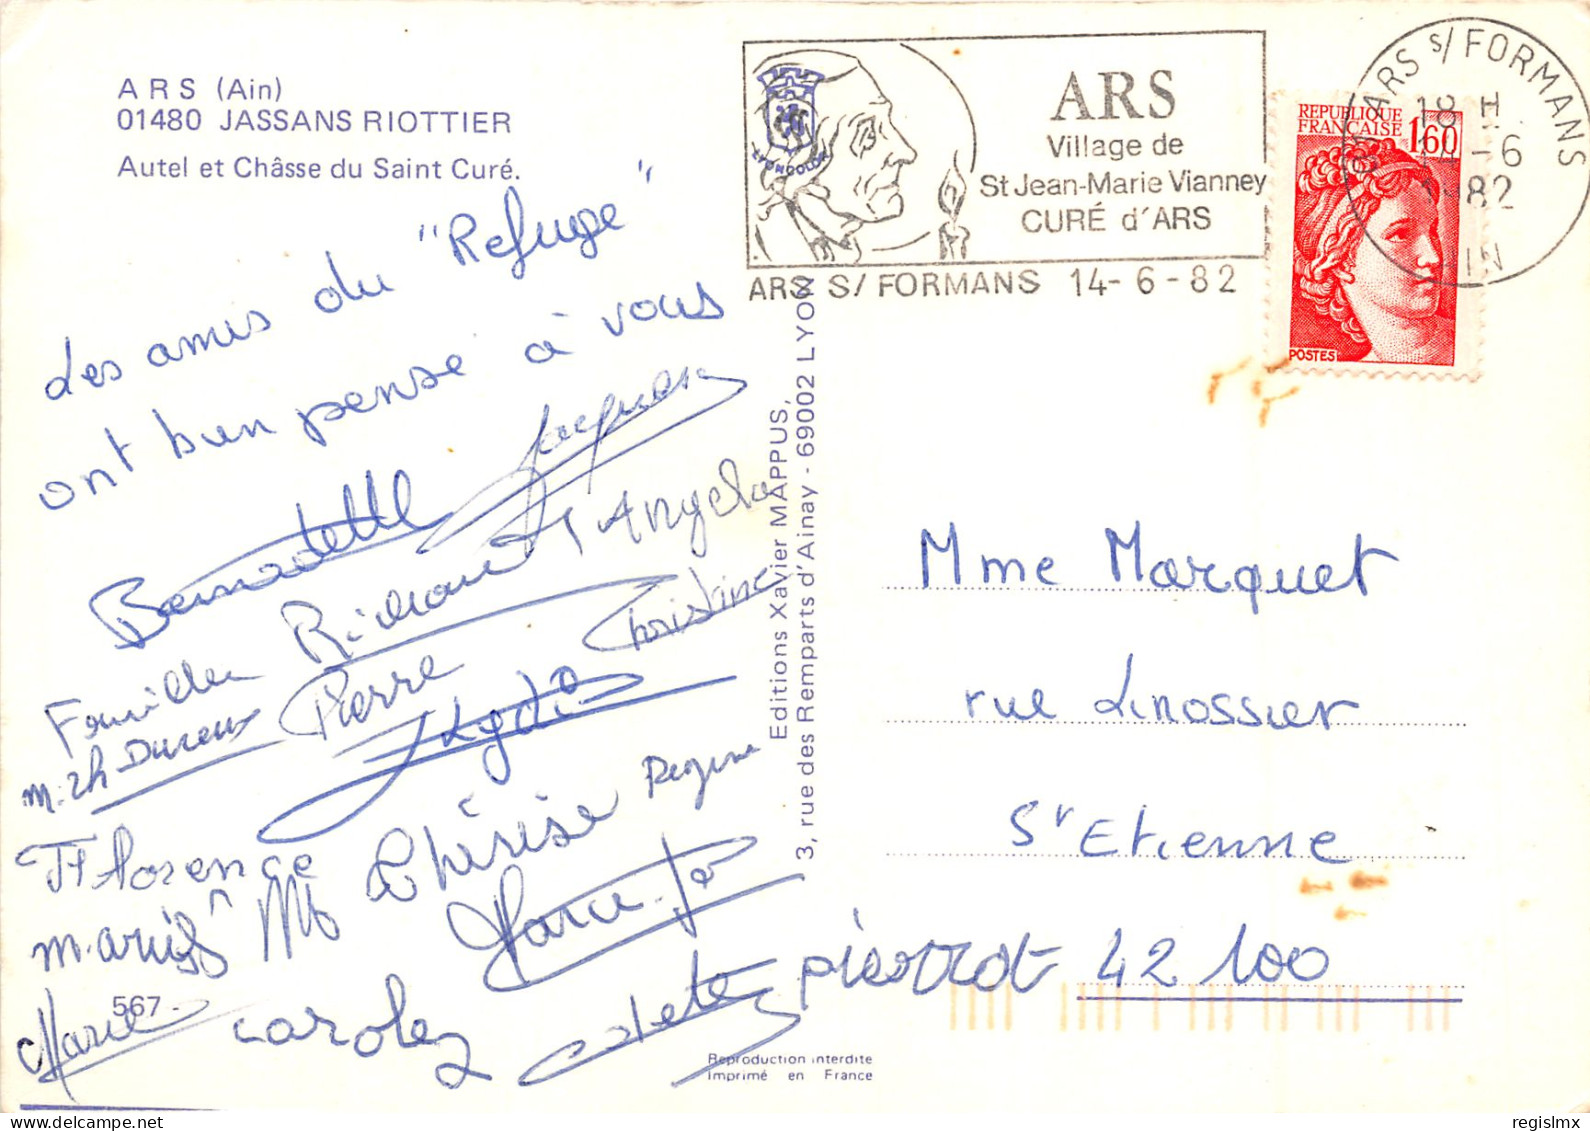 ARS (Ain)
01480 JASSANS RIOTTIER
Autel et Châsse du Saint Curé.
Les amis du "Refuge"
ont bien pensé à vous
Jacques
Bernadette
Angela
Richard
Christine
Pierre
Lydie
Regine
Thérèse
Florence
Marie-Jo
Marie
carole
pierrot
567
LYONCOLOR
ARS
Village de
St Jean-Marie Vianney
CURÉ d'ARS
ARS S/ FORMANS 14-6-82
ARS S/ FORMANS
18 H
14-6
1982
AIN
REPUBLIQUE
FRANÇAISE 1,60
POSTES
Editions Xavier MAPPUS,
3, rue des Remparts d'Ainay - 69002 LYON
Mme Marquet
rue Linossier
St Etienne
42 100
Reproduction interdite
Imprimé en France
regislmx